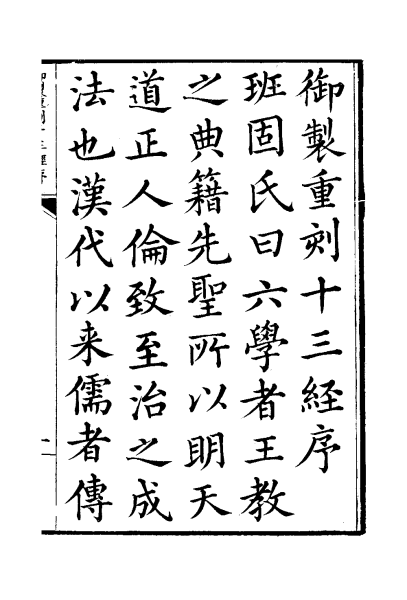 御製重刻十三經序
班固氏曰六學者王教
之典籍先聖所以明天
道正人倫致至治之成
法也漢代以来儒者傳